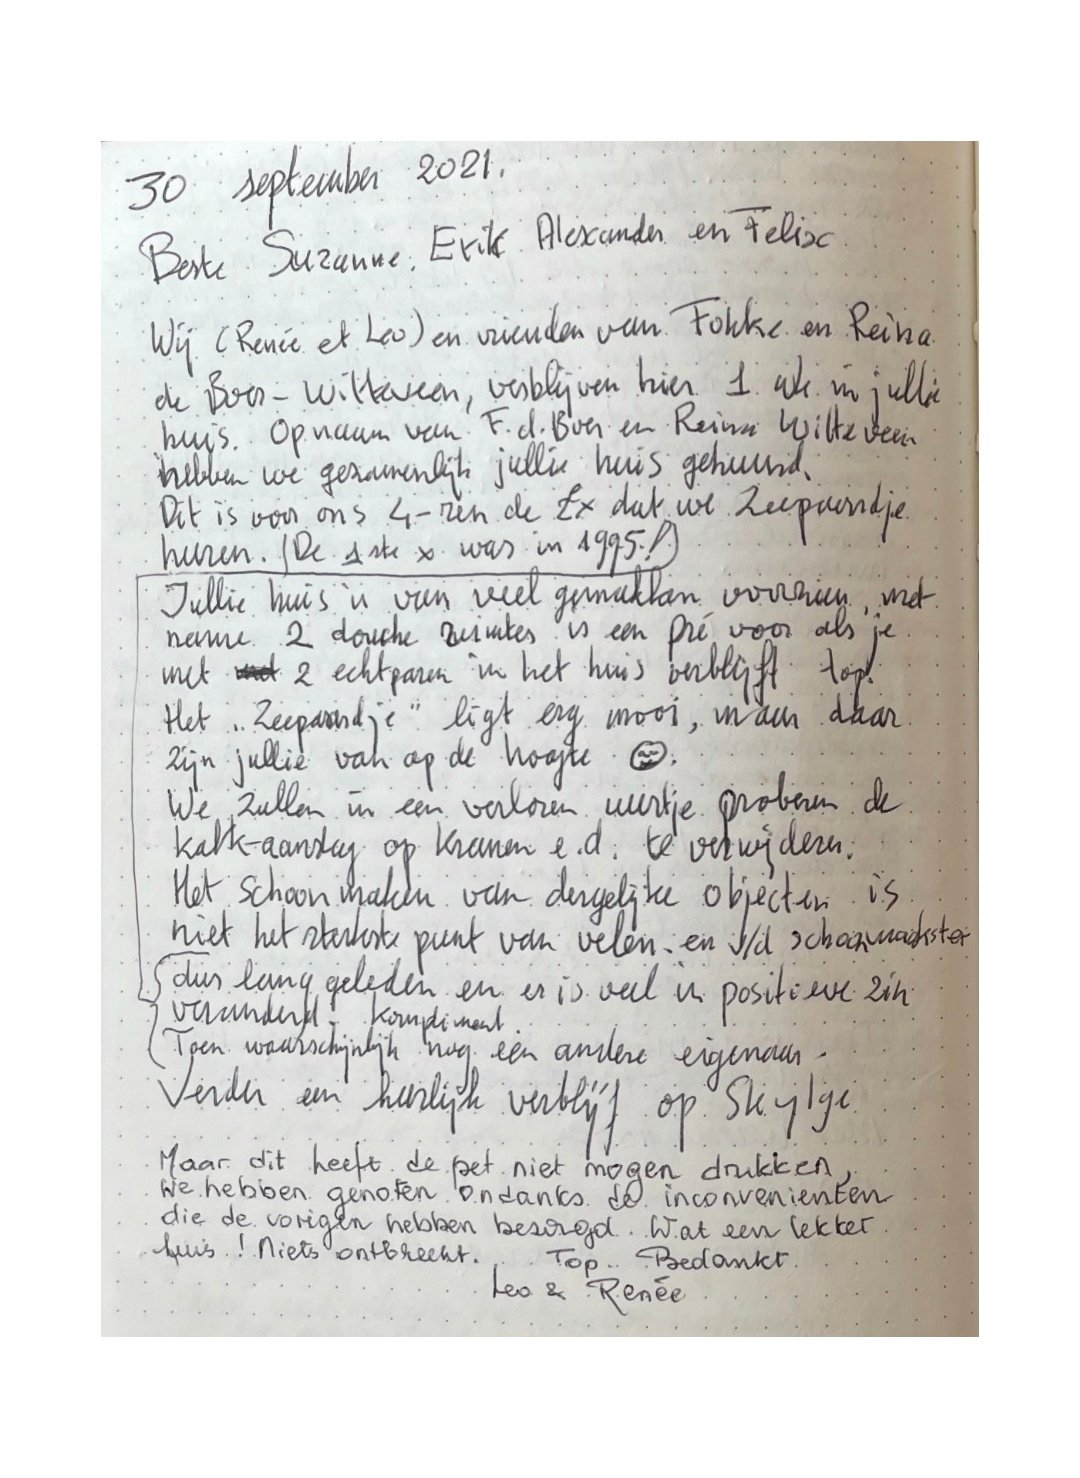 30 september 2021.
Beste Suzanne, Erik Alexander en Felix
Wij (Renée et Leo) en vrienden van Fokke en Reina
de Boer - Witteveen, verblijven hier 1 wk in jullie
huis. Op naam van F.d.Boer en Reina Witteveen
hebben we gezamenlijk jullie huis gehuurd.
Dit is voor ons 4-ren de 2x dat we Zeepaardje
huren. (De 1ste x was in 1995!)
Jullie huis is van veel gemakken voorzien, met
name 2 douche ruimtes is een pré voor als je
met 2 echtparen in het huis verblijft top!
Het "Zeepaardje" ligt erg mooi, maar daar
zijn jullie van op de hoogte.
We zullen in een verloren uurtje proberen de
kalk-aanslag op kranen e.d. te verwijderen.
Het schoonmaken van dergelijke objecten is
niet het sterkste punt van velen en v/d schoonmaakster
dus lang geleden en er is veel in positieve zin
veranderd! Kompliment
Toen waarschijnlijk nog één andere eigenaar.
Verder een heerlijk verblijf op Skylge
Maar dit heeft de pet niet mogen drukken,
we hebben genoten ondanks de inconvenienten
die de vorigen hebben bezorgd. Wat een lekker
huis! Niets ontbreekt. Top. Bedankt
Leo & Renée